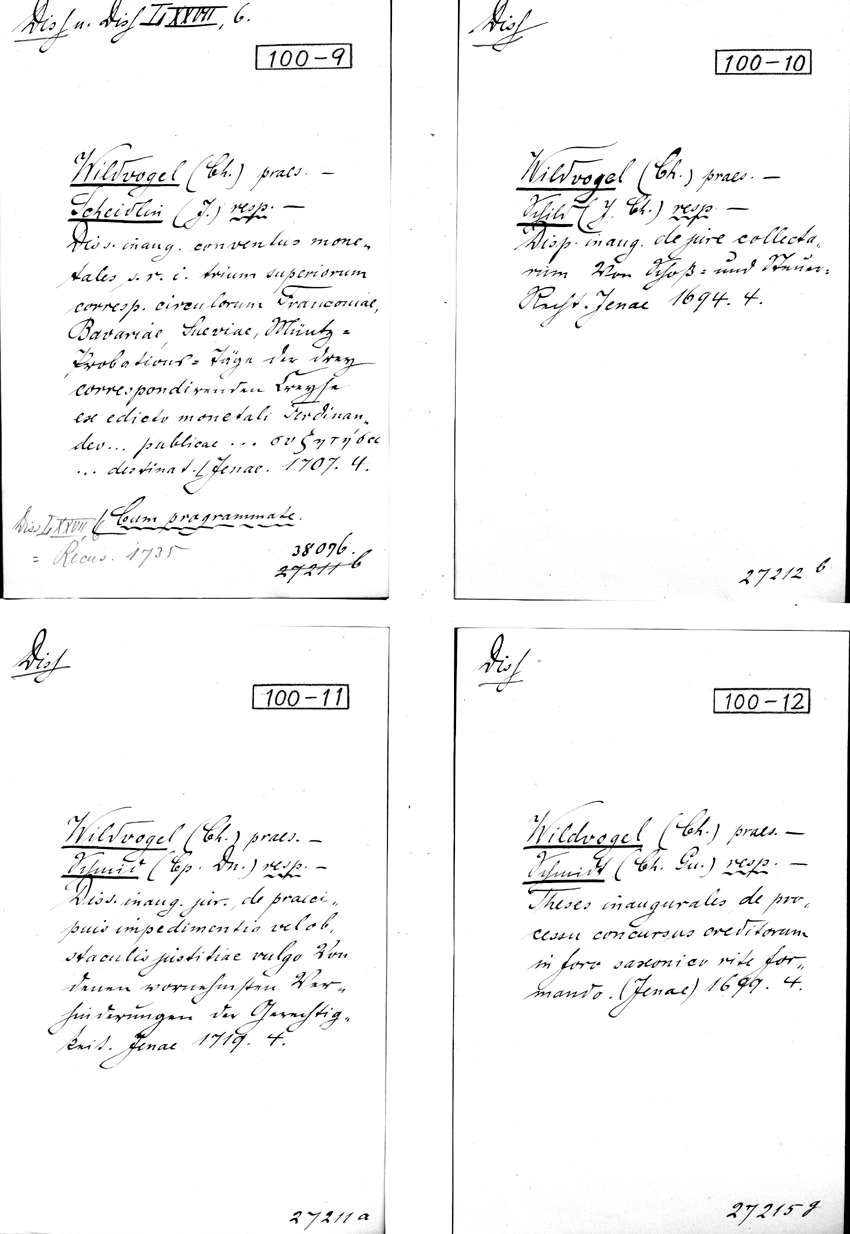 Diss u. Diss LXXVII, 6.
100-9
Wildvogel (Ch.) praes. —
Scheidlin (J.) resp. —
Diss. inaug. conventus mone-
tales s. r. i. trium superiorum
corresp. circulorum Franconiae,
Bavariae, Sueviae, Müntz-
Probations-Täge der drey
correspondirenden Creyse
ex edicto monetali Ferdinan-
deo... publicae ... συζητήσει
... destinat. (Jenae. 1707. 4.
(Cum programmate.
Diss LXXVII 6
= Recus. 1735
38096.
27211 b
Diss
100-10
Wildvogel (Ch.) praes. —
Schild (J. Ch.) resp. —
Disp. inaug. de jure collecta-
rum Von Schoß- und Steuer-
Recht. Jenae 1694. 4.
27212 b
Diss
100-11
Wildvogel (Ch.) praes. —
Schmid (Cp. Dn.) resp. —
Diss. inaug. jur. de praeci-
puis impedimentis vel ob-
staculis justitiae vulgo Von
denen vornehmsten Ver-
hinderungen der Gerechtig-
keit. Jenae 1719. 4.
27211 a
Diss
100-12
Wildvogel (Ch.) praes. —
Schmidt (Ch. Gu.) resp. —
Theses inaugurales de pro-
cessu concursus creditorum
in foro saxonico rite for-
mando. (Jenae) 1699. 4.
27215 g